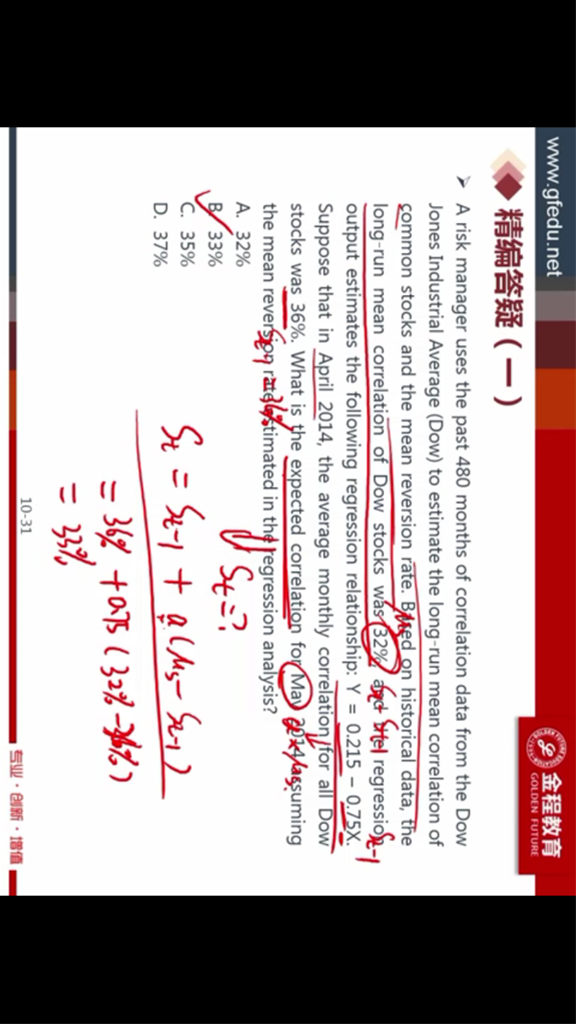 www.gfedu.net
精编答疑（一）
金程教育
GOLDEN FUTURE
➤ A risk manager uses the past 480 months of correlation data from the Dow
Jones Industrial Average (Dow) to estimate the long-run mean correlation of
common stocks and the mean reversion rate. Based on historical data, the
long-run mean correlation of Dow stocks was 32%, and the regression
output estimates the following regression relationship: Y = 0.215 − 0.75X.
Suppose that in April 2014, the average monthly correlation for all Dow
stocks was 36%. What is the expected correlation for May 2014, assuming
the mean reversion rate estimated in the regression analysis?
A. 32%
B. 33%
C. 35%
D. 37%
St - St-1
St-1
St-1 = 36%
St = ?
St = St-1 + a(μs - St-1)
= 36% + 0.75(32% - 36%)
= 33%
10-31
专业·创新·增值